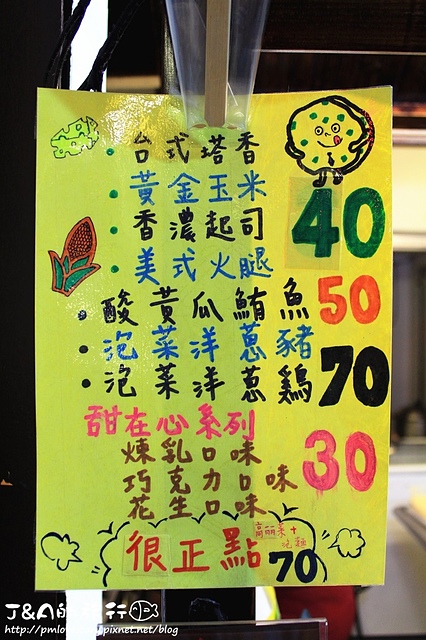 台式塔香
黃金玉米
香濃起司
美式火腿
40
酸黃瓜鮪魚 50
泡菜洋蔥豬
泡菜洋蔥鷄
70
甜在心系列
煉乳口味
巧克力口味
花生口味
30
高麗菜+
泡麵
很正點 70
J&A的旅行